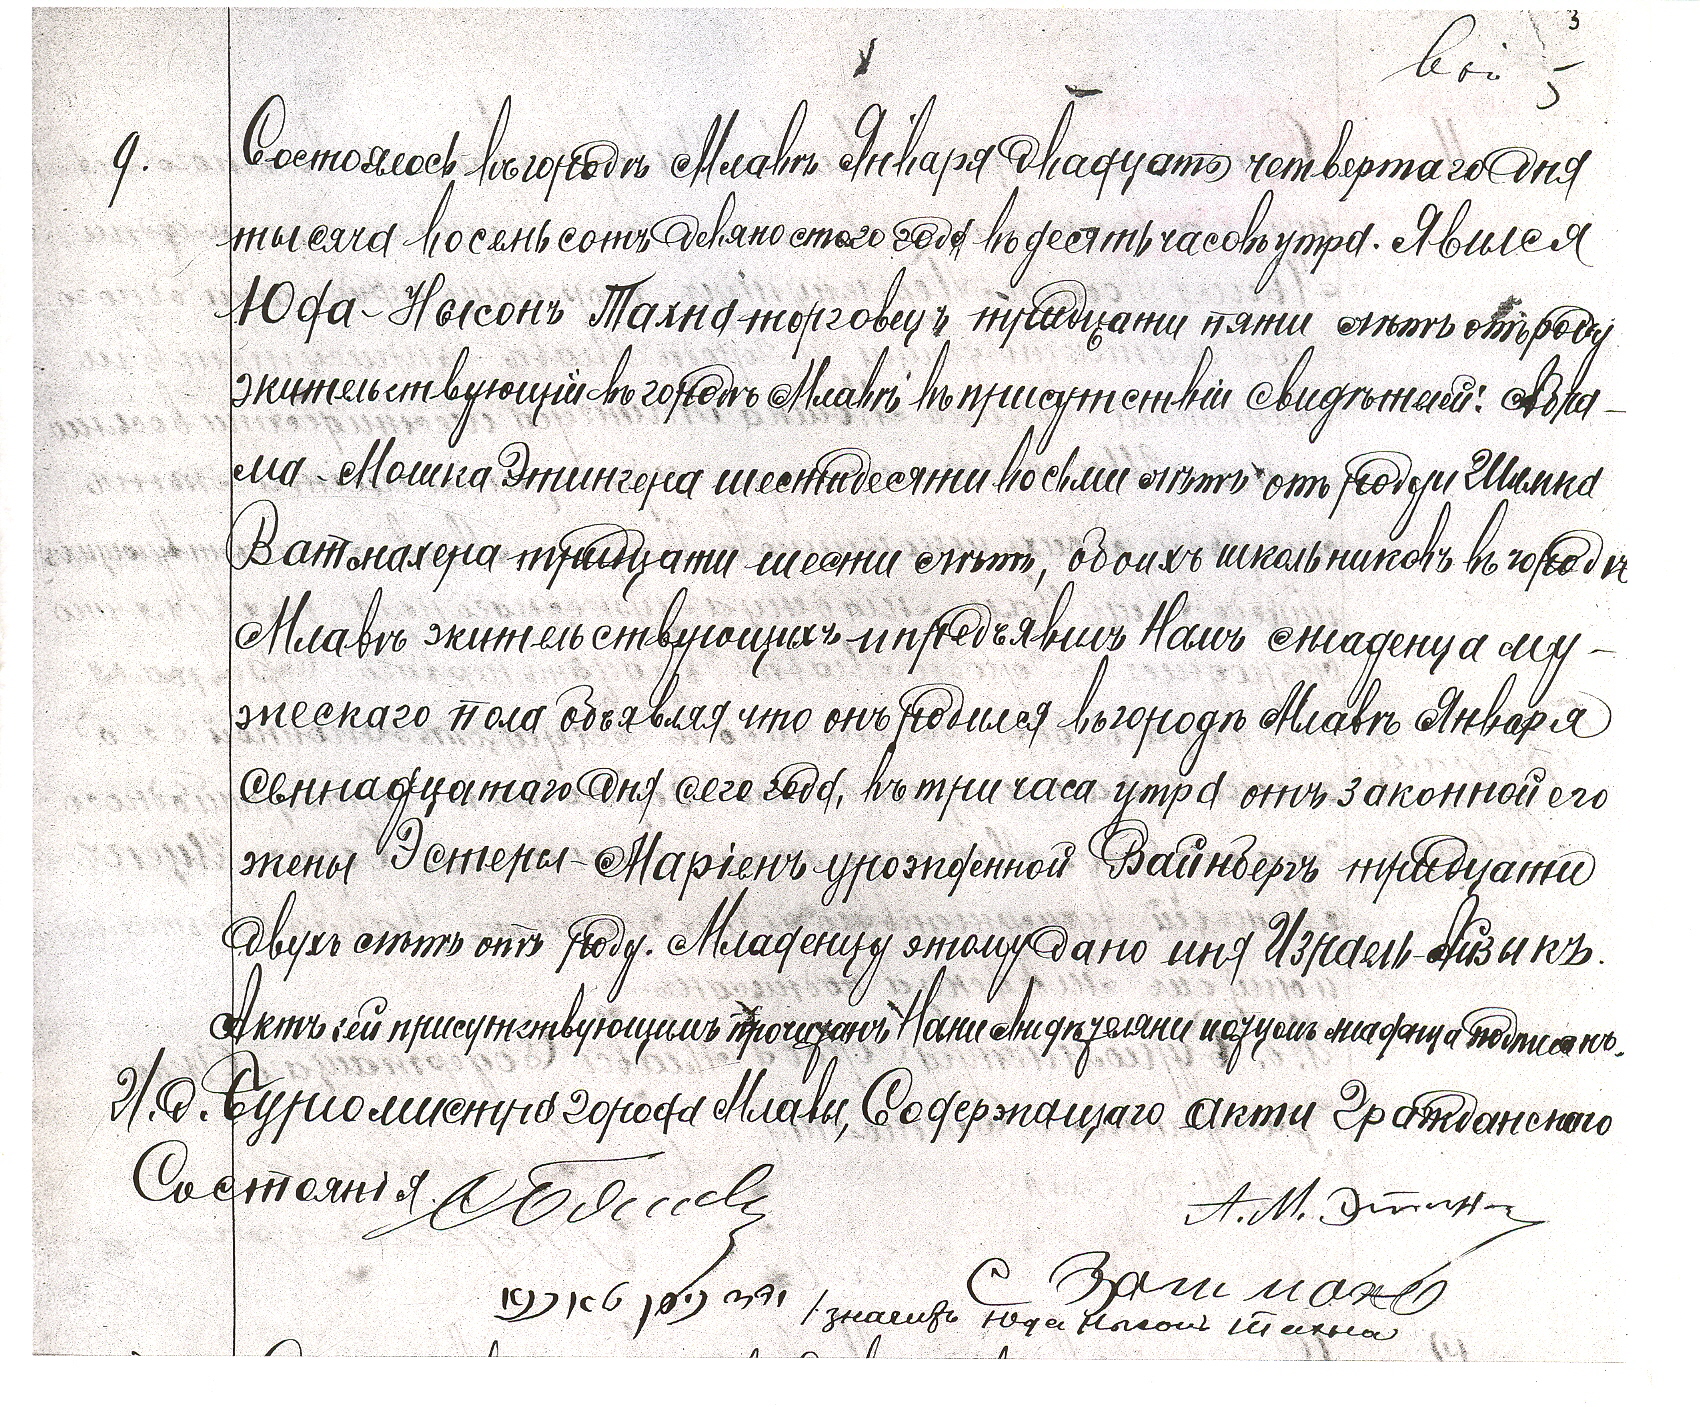 3
5
9.
Состоялось въ городѣ Млавѣ Января двадцать четвертаго дня
тысяча восемьсотъ девяностого года въ десять часовъ утра. Явился
Юда-Нысонъ Тахна торговецъ тридцати пяти лѣтъ отъ роду
жительствующій въ городѣ Млавѣ въ присутствіи свидѣтелей: Абра-
ма-Мошка Этингера шестидесяти восьми лѣтъ отъ роду и Шлямка
Ватмахера тридцати шести лѣтъ, обоихъ школьниковъ въ городѣ
Млавѣ жительствующихъ и предъявилъ Намъ младенца му-
жескаго пола объявляя что онъ родился въ городѣ Млавѣ Января
семнадцатаго дня сего года, въ три часа утра отъ законной его
жены Эстеры-Маріемъ урожденной Вайнбергъ тридцати
двухъ лѣтъ отъ роду. Младенцу этому дано имя Израель-Айзыкъ.
Актъ сей присутствующимъ прочитанъ Нами свидѣтелями и отцомъ младенца подписанъ.
И.д. Бургомистра города Млавы, Содержащаго акты Гражданскаго
Состоянія
А.М. Этинг
С Ватмахе
יודא ניסן טאכנא /: значитъ Юда Нысонъ Тахна